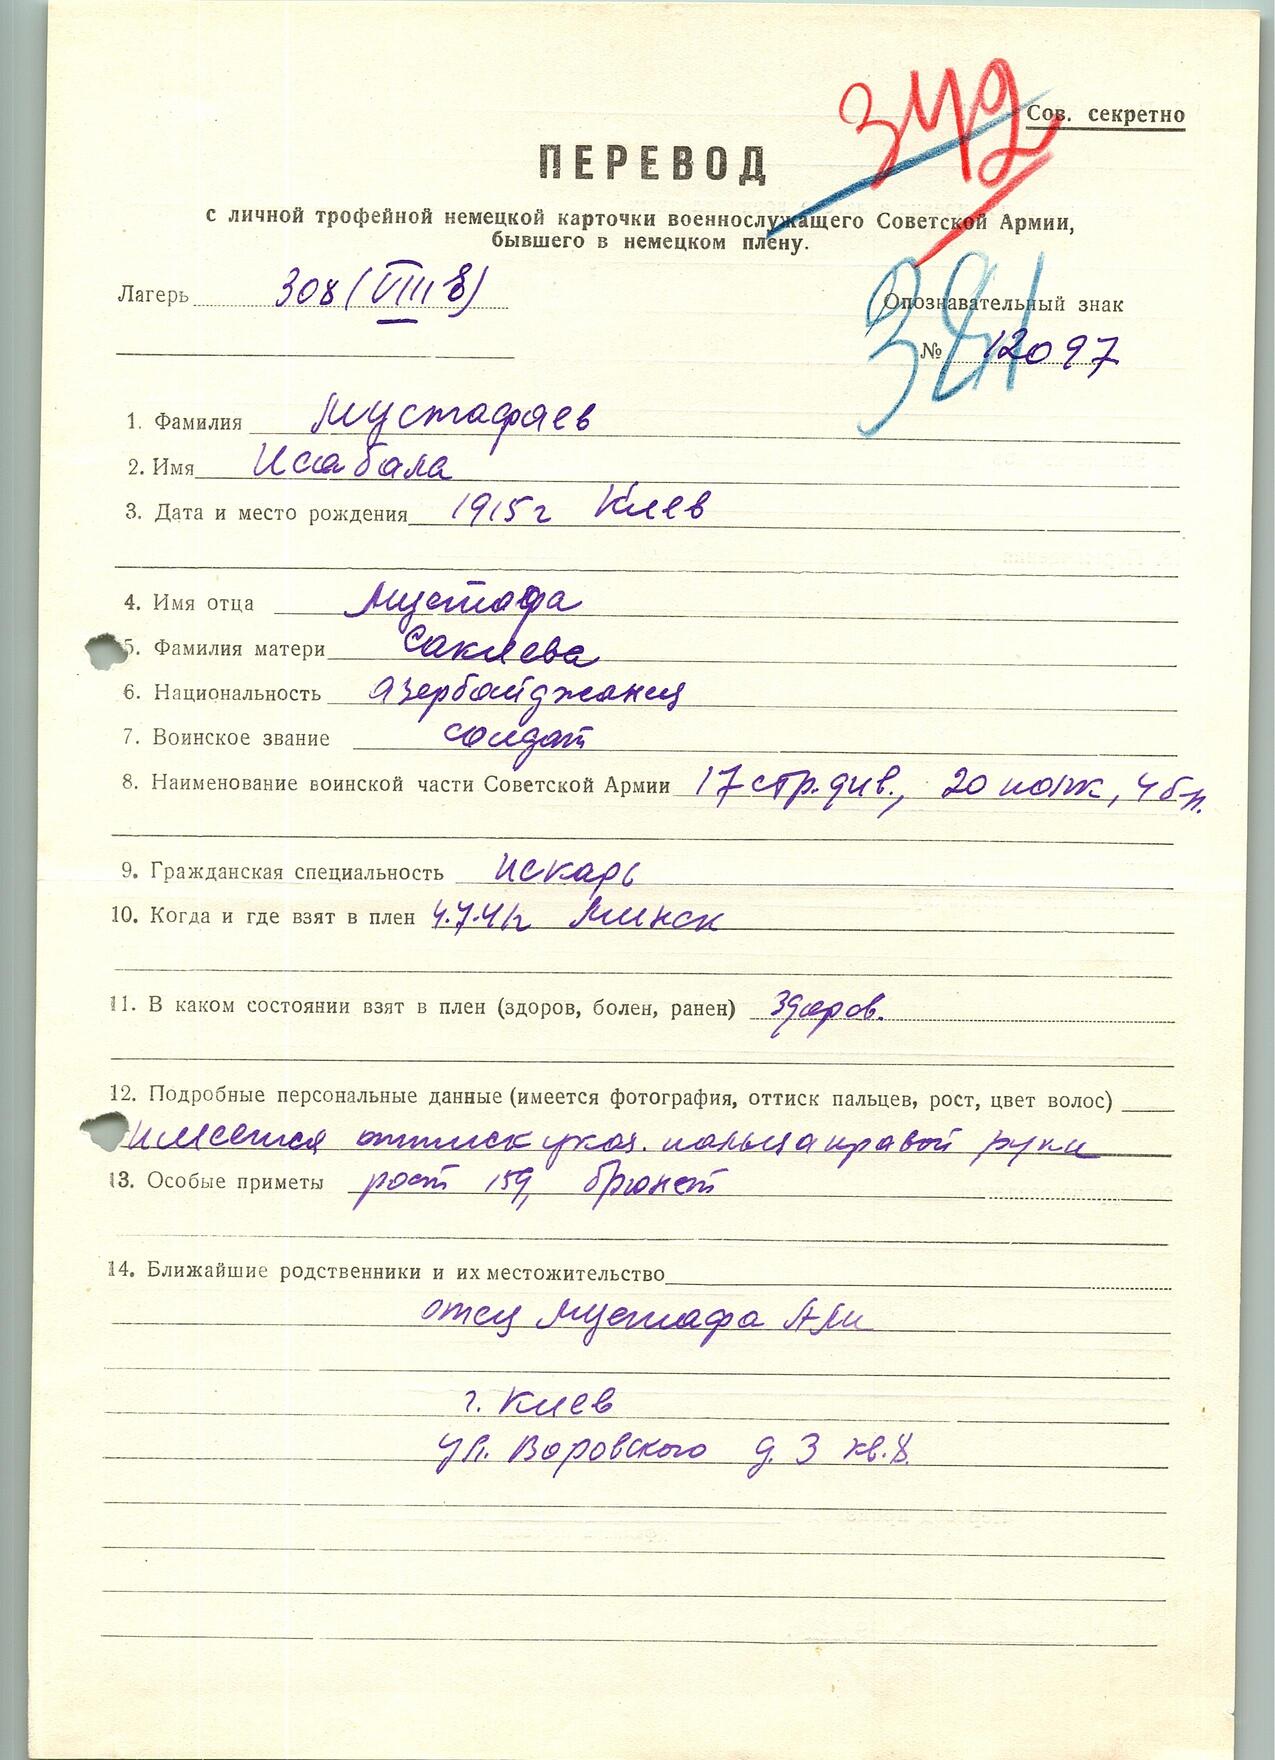 342
Сов. секретно
ПЕРЕВОД
с личной трофейной немецкой карточки военнослужащего Советской Армии,
бывшего в немецком плену.
Лагерь 308 (VIII в)
Опознавательный знак
№ 12097
1. Фамилия Мустафаев
2. Имя Исабала
3. Дата и место рождения 1915 г Киев
4. Имя отца Мустафа
5. Фамилия матери Сакиева
6. Национальность азербайджанец
7. Воинское звание солдат
8. Наименование воинской части Советской Армии 17 стр. див., 20 полк, 4 б-н.
9. Гражданская специальность
10. Когда и где взят в плен 4.7.41г Минск
11. В каком состоянии взят в плен (здоров, болен, ранен) здоров.
12. Подробные персональные данные (имеется фотография, оттиск пальцев, рост, цвет волос)
имеется оттиск указ. пальца правой руки
13. Особые приметы рост 159, брюнет
14. Ближайшие родственники и их местожительство
отец Мустафа Али
г. Киев
ул. Воровского д. 3 кв. 8.